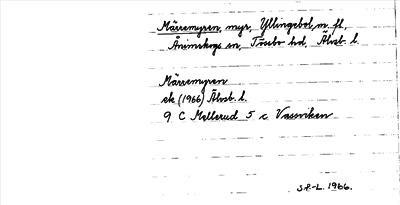 Märremyren, myr, Yllingebol, m. fl.
Ånimskogs sn, Tössbo hd, Älvsb. l.
Märremyren
ek (1966) Älvsb. l.
9 C Mellerud 5 c Vassviken
S.P.-L. 1966.